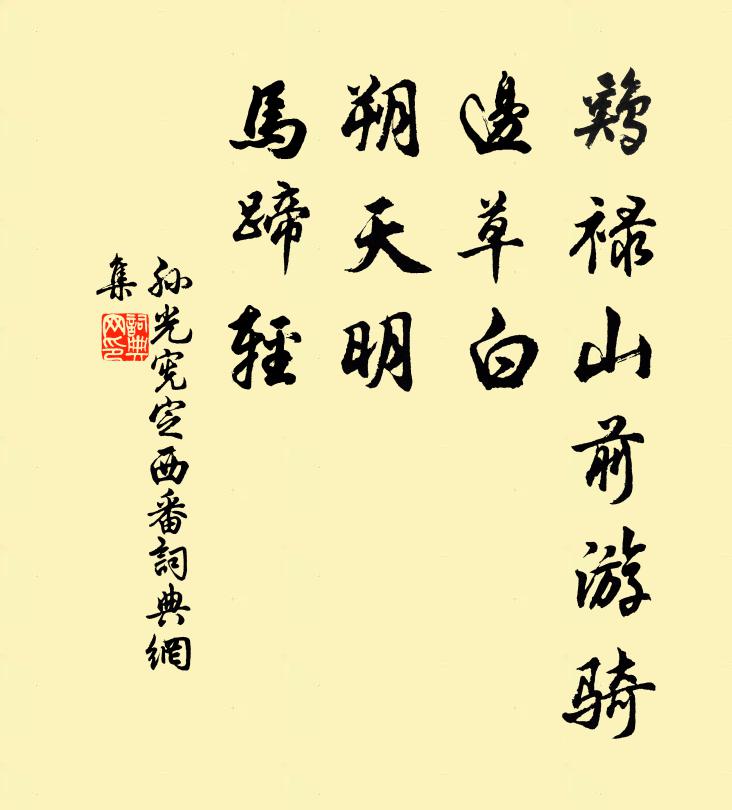 鷄禄山前游骑
邊草白
朔天明
馬蹄輕
孙光宪定西番詞典網
集
詞典
网印